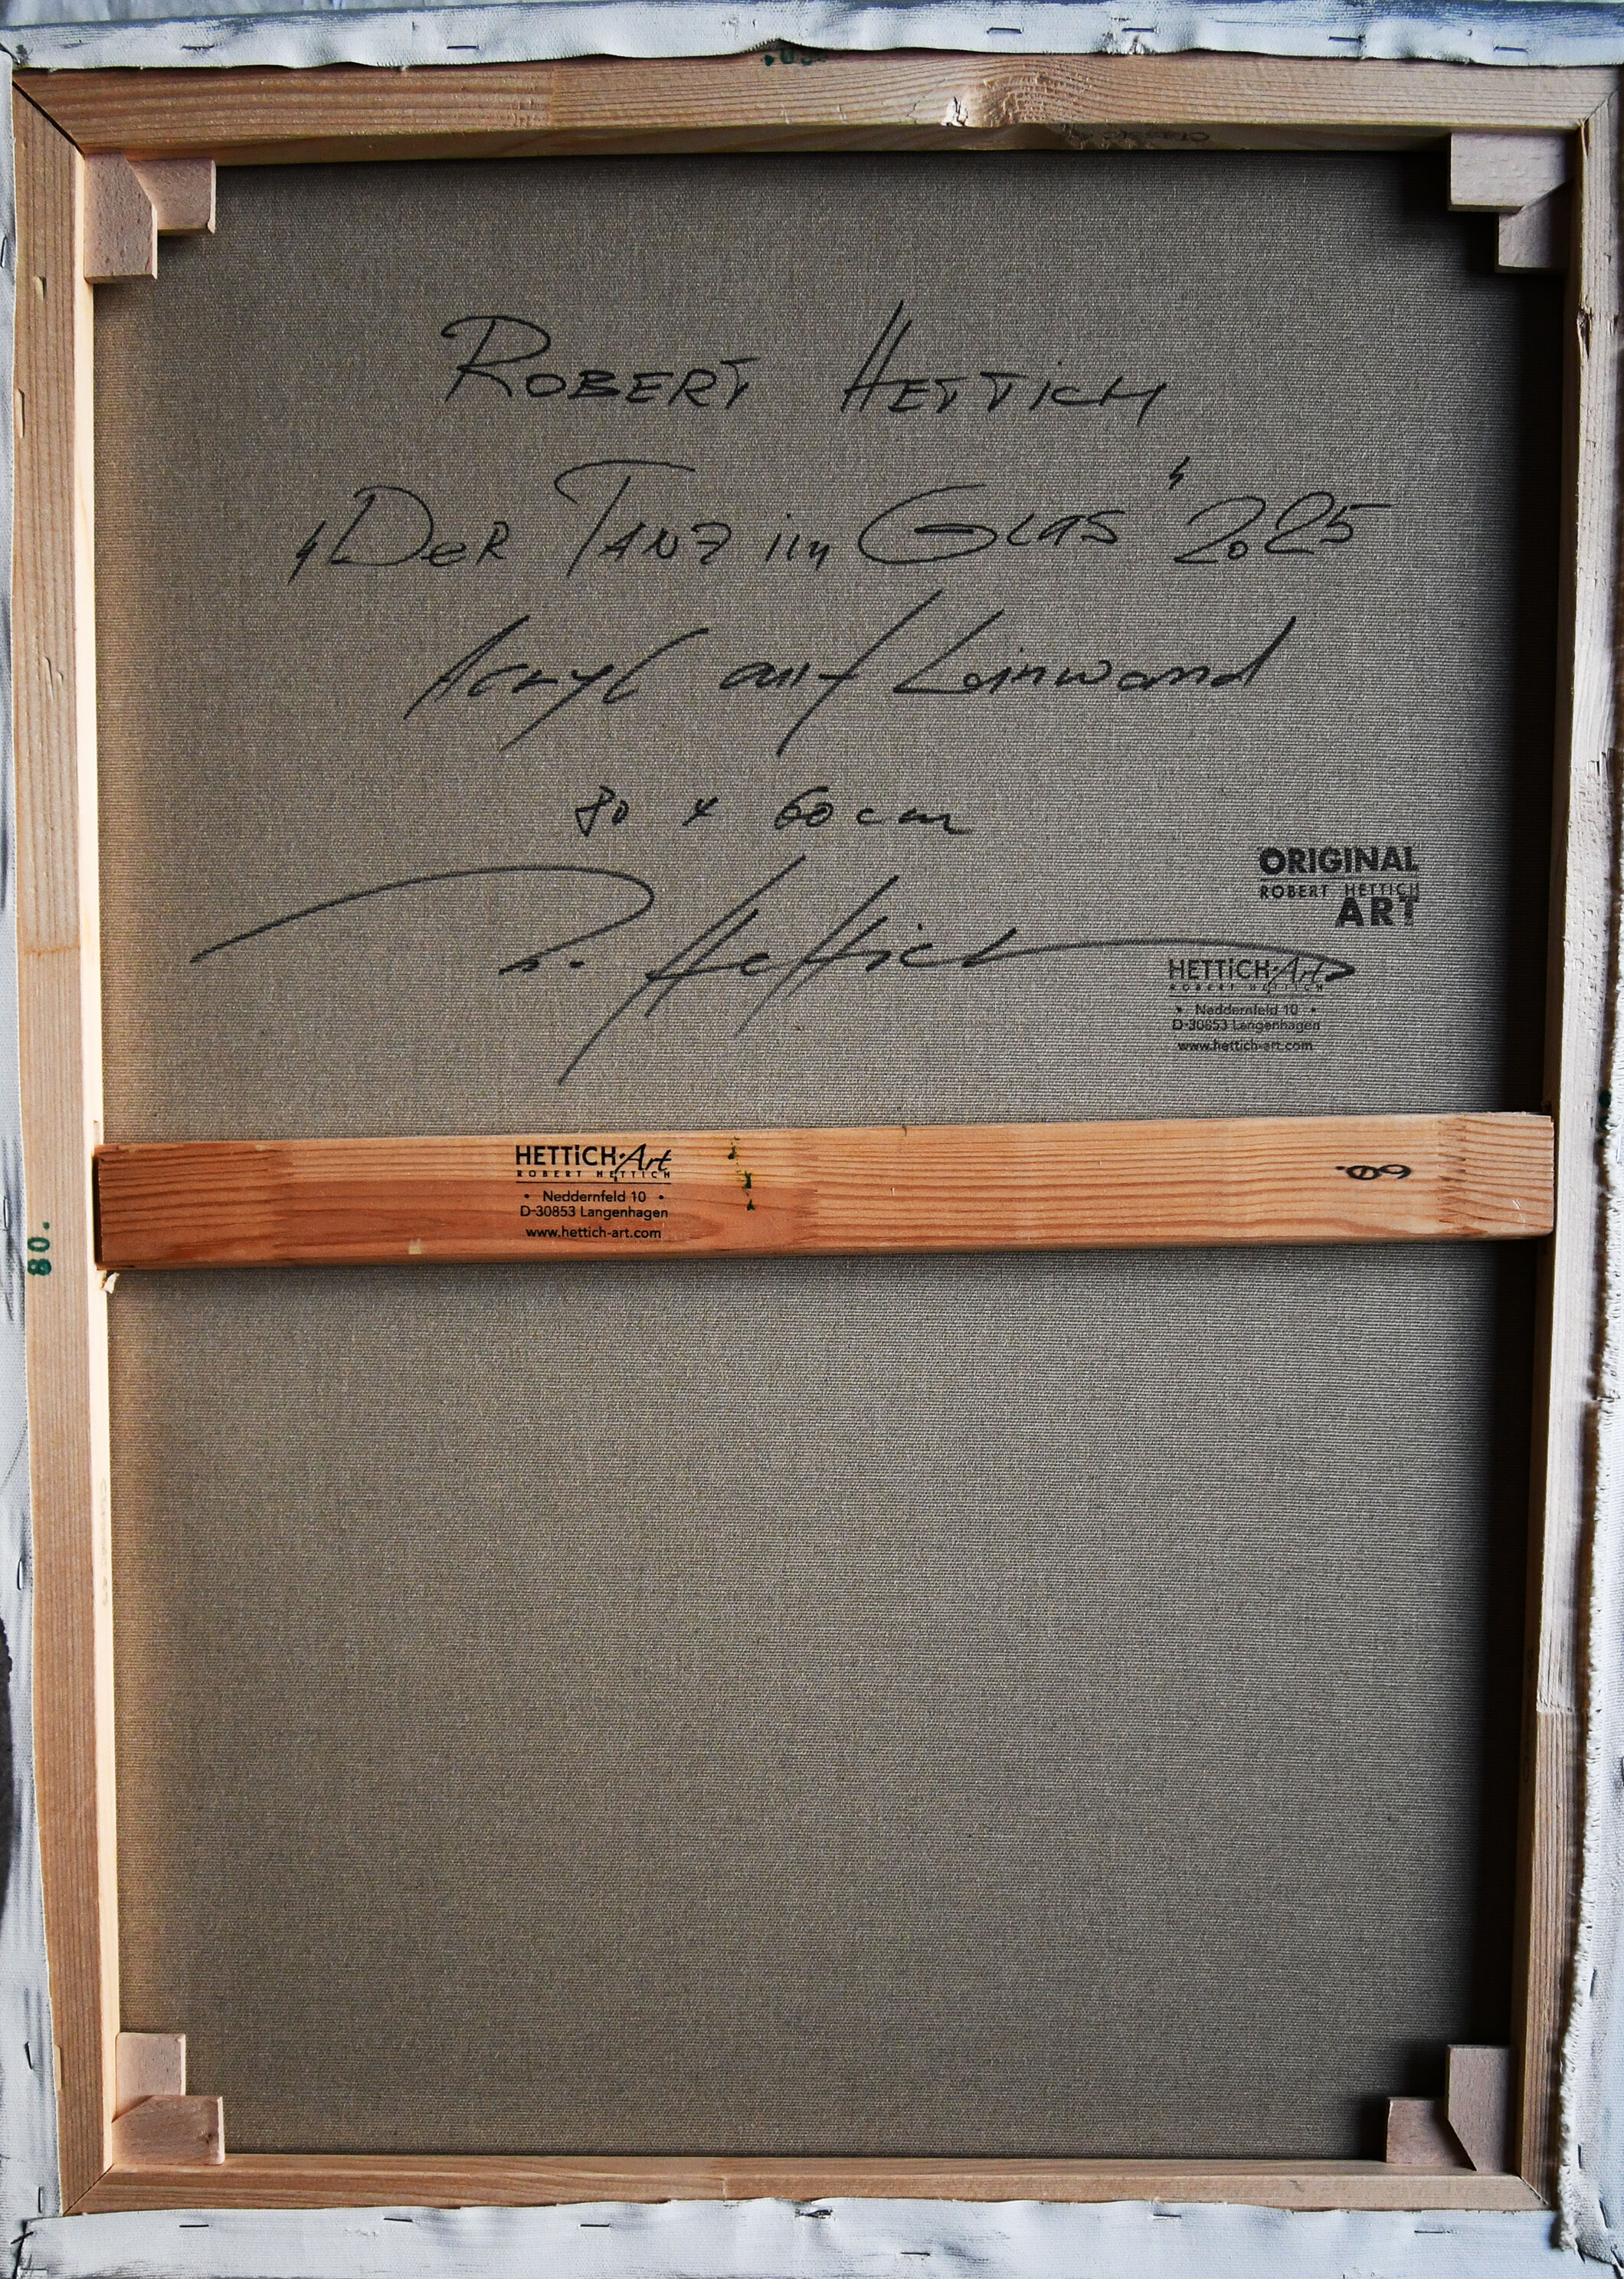 ROBERT HETTICH
„DER TANZ im GLAS“ 2025
Acryl auf Leinwand
80 x 60 cm
ORIGINAL
ROBERT HETTICH
ART
R. Hettich
HETTICH·Art
ROBERT HETTICH
• Neddernfeld 10 •
D-30853 Langenhagen
www.hettich-art.com
HETTICH·Art
ROBERT HETTICH
• Neddernfeld 10 •
D-30853 Langenhagen
www.hettich-art.com
60.
80.